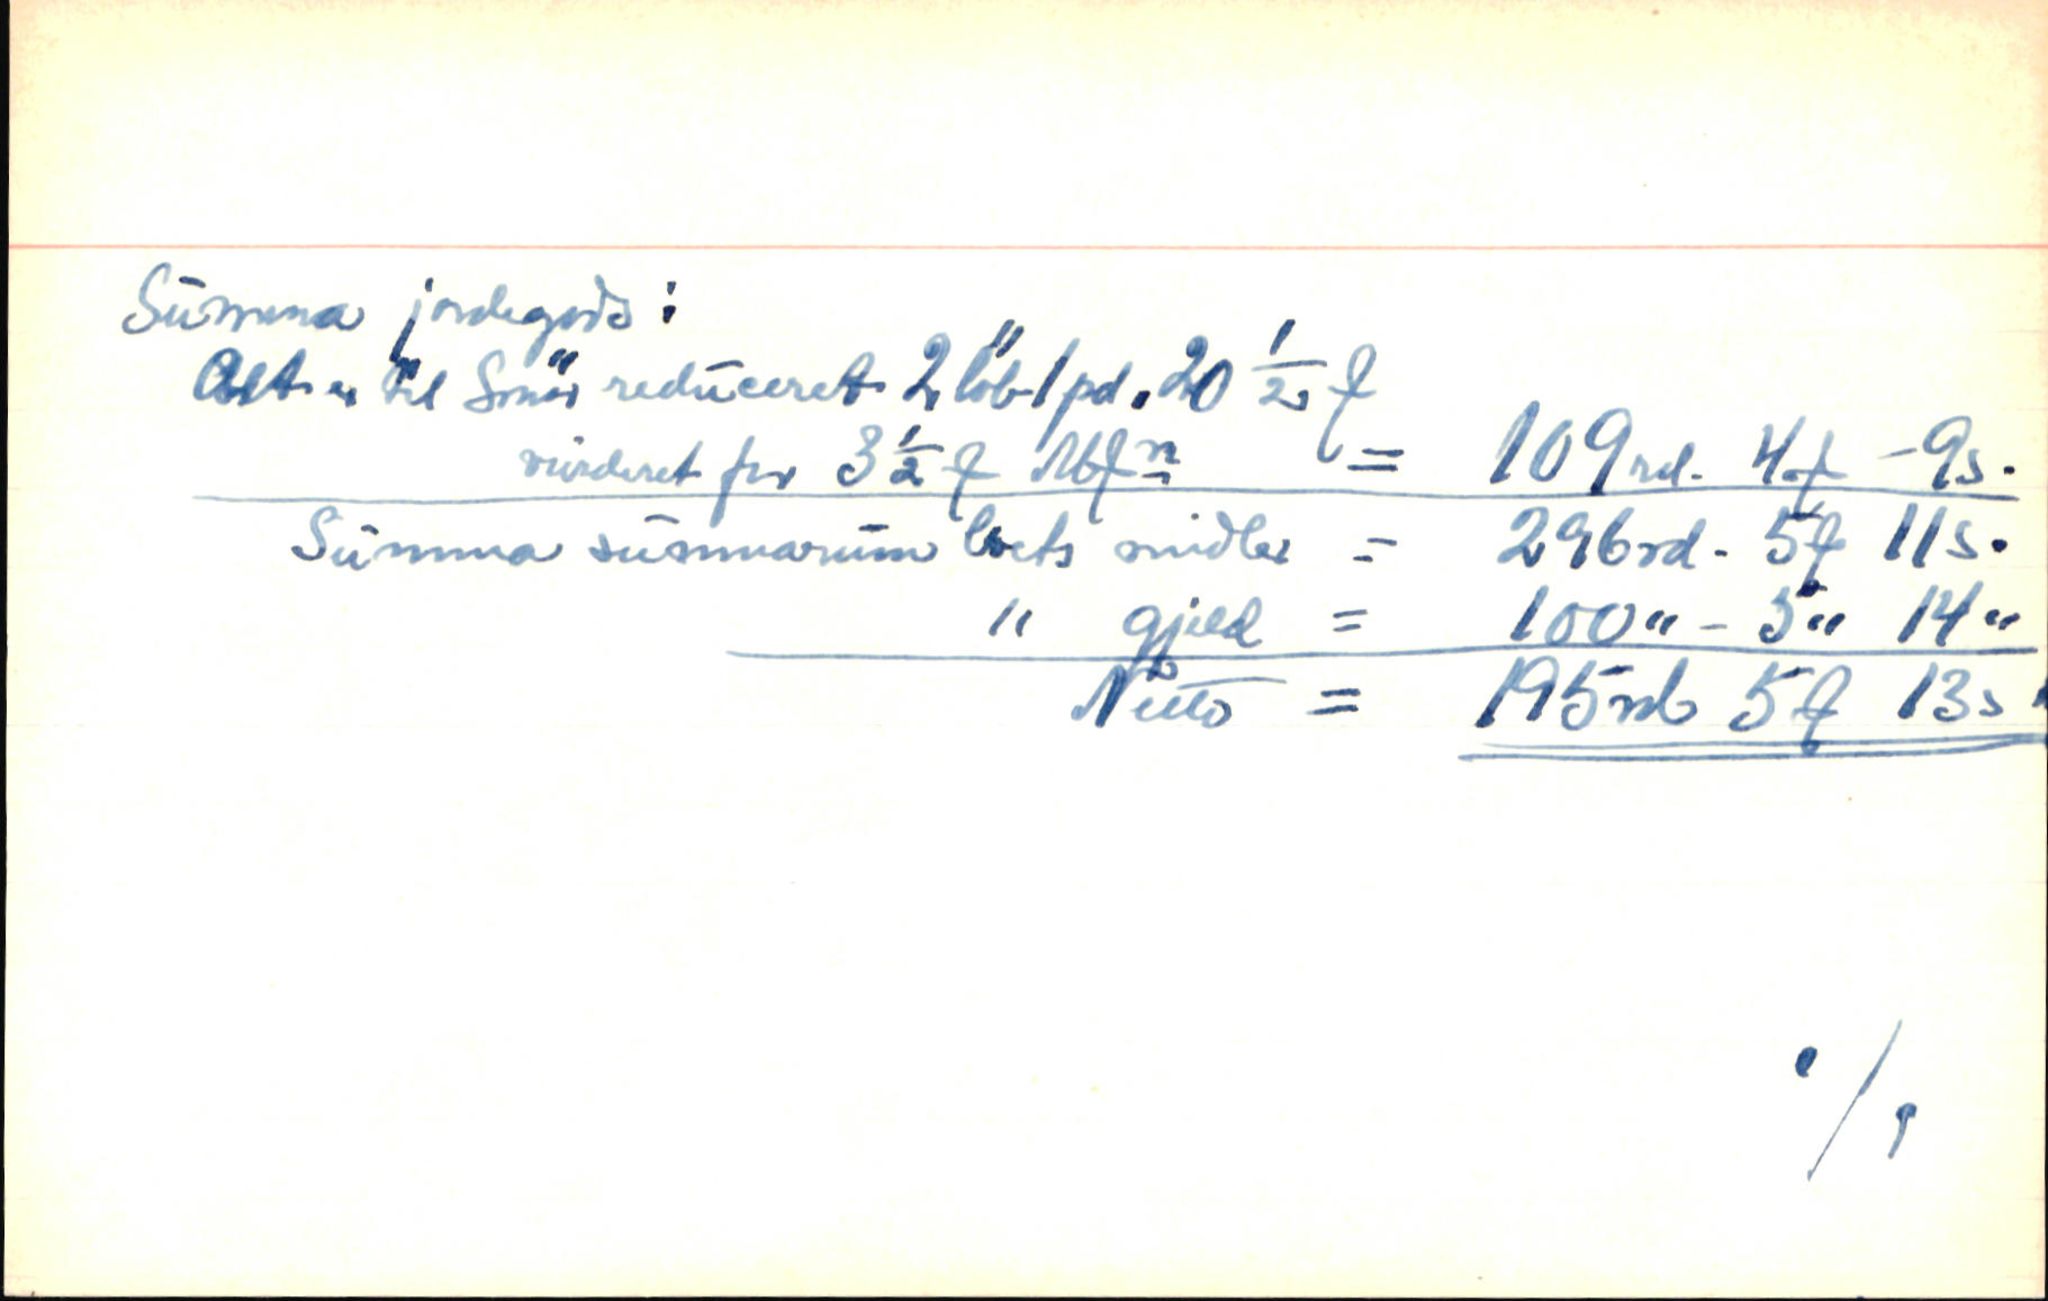 Summa jordegods:
Alt er til Smör reduceret 2 löb 1 pd. 20 1/2 f
vurderet for 3 1/2 f = 109 rd. 4 f - 9 s.
Summa summarum boets midler = 296 rd - 5 f 11 s.
" gjeld = 100 " - 5 " 14 "
Netto = 195 rd 5 f 13 s